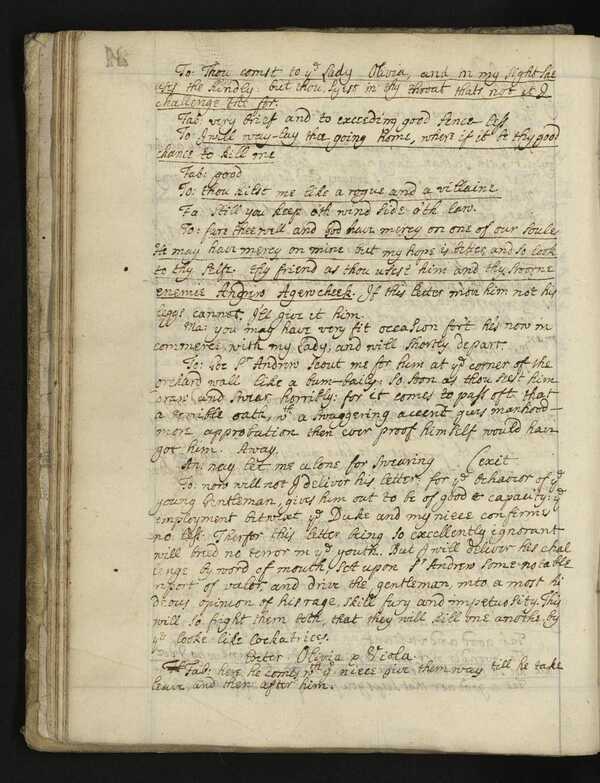 To: Thou comst to yᵉ Lady Olivia, and in my sight she
uses the kindly. but thou lyist in thy throat thats not it I
challenge the for.
Fab: very brief and to exceeding good sence less
To: I will way-lay thee going home, where if it be thy good
chance to kill me
Fab: good
To: thou kilst me like a rogue and a villaine
Fa: Still you keep oth wind side oth law.
To: fare thee well and God have mercy on one of our soules
He may have mercy on mine but my hope is better, and so look
to thy selfe. thy friend as thou usest him and thy sworne
enemie Andrew Aguecheek. If this letter move him not his
leggs cannot, Ill give it him.
Ma: you may have very fit occasion fort his now in
commerce with my Lady, and will shortly depart.
To: Goe Sʳ Andrew scout me for him at yᵉ corner of the
orchard wall like a bum-baily: so soon as thou seest him
draw and swear horribly: for it comes to pass oft that
a terrible oath, wᵗʰ a swaggering accent gives manhood
more approbation then ever proof himself would have
got him. Away.
An: nay let me alone for swearing (exit
To: now will not I deliver his letter: for yᵉ behavior of yᵉ
young Gentleman, gives him out to be of good & capacity: yᵉ
employment betwixt yᵉ Duke and my niece confirms
no less. Therfor this letter being so excellently ignorant
will breed no terror in yᵉ youth. But I will deliver his chal
lenge by word of mouth, set upon Sʳ Andrew some notable
report of valor, and drive the gentleman, into a most hi
deous opinion of his rage, skill fury and impetuosity. This
will so fright them both, that they will kill one another by
yᵉ looke like Cockatrices.
Enter Olivia & Viola.
Fab: here he comes wᵗʰ yᵉ niece give them way till he take
leave and then after him.